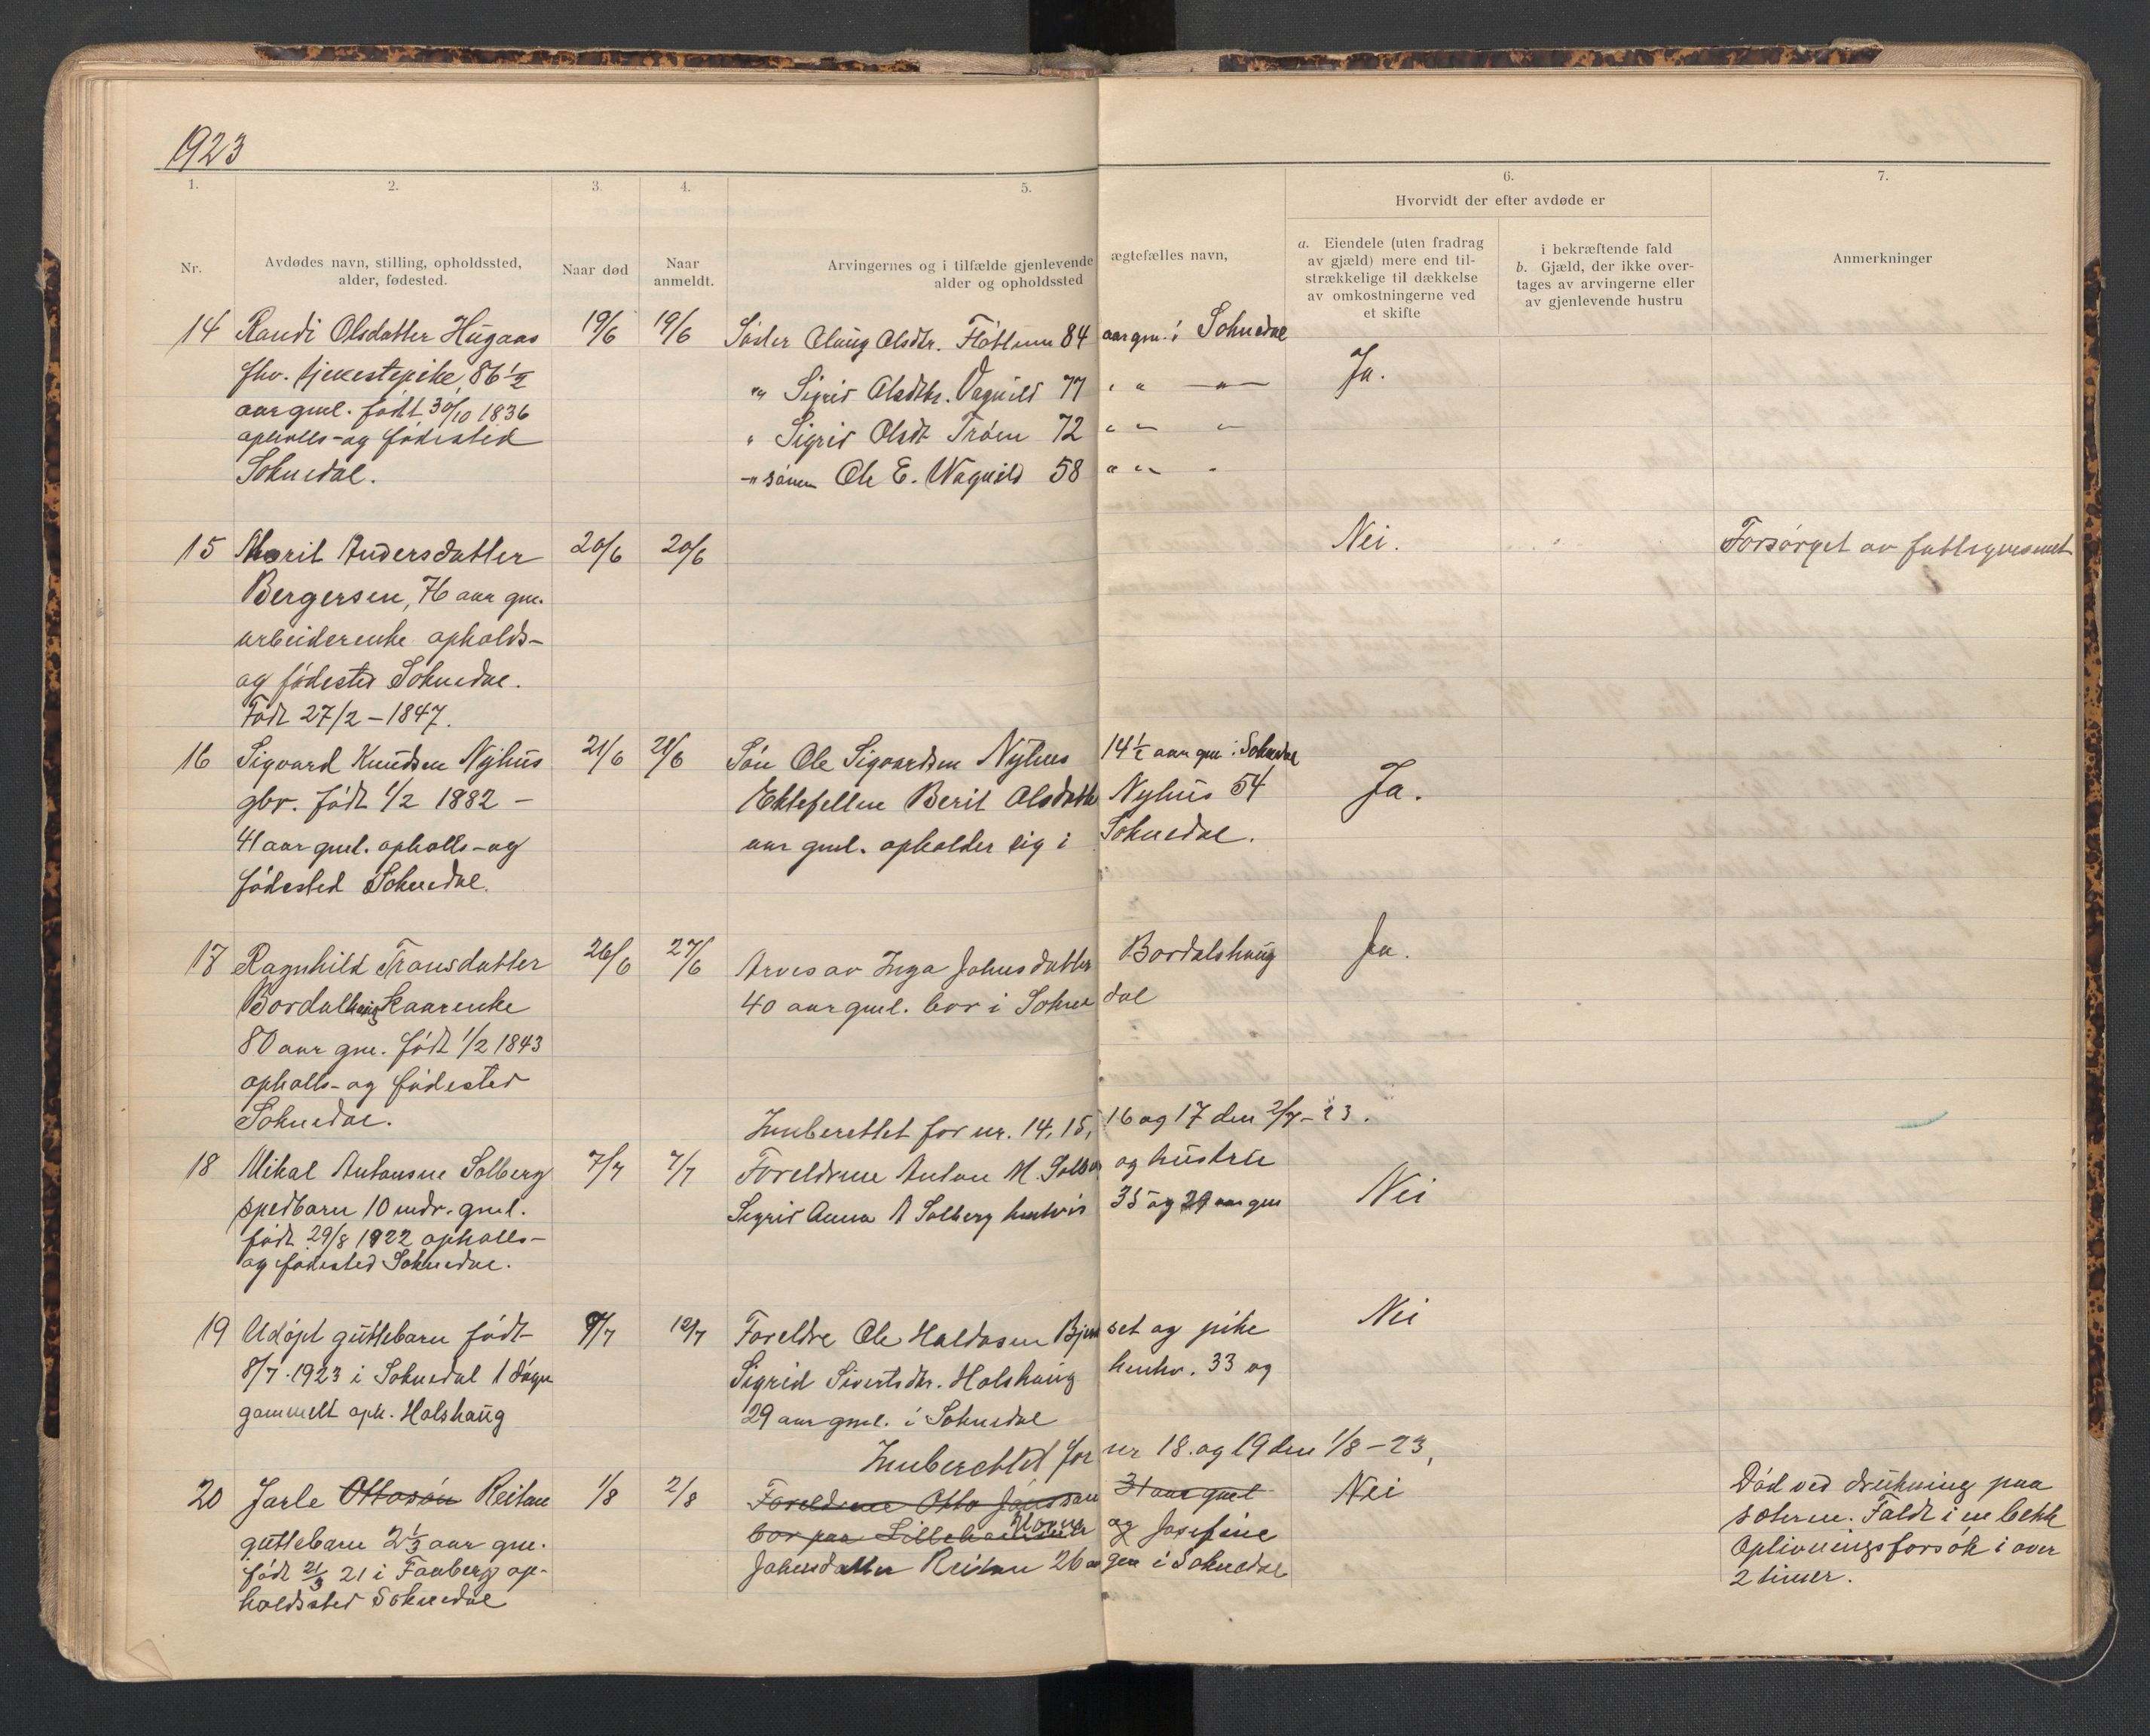 1923
1. 2. 3. 4. 5. 6. 7.
Hvorvidt der efter avdøde er
Nr.
Avdødes navn, stilling, opholdssted,
alder, fødested.
Naar død
Naar
anmeldt.
Arvingernes og i tilfælde gjenlevende ægtefælles navn,
alder og opholdssted
a. Eiendele (uten fradrag
av gjæld) mere end til-
strækkelige til dækkelse
av omkostningerne ved
et skifte
i bekræftende fald
b. Gjæld, der ikke over-
tages av arvingerne eller
av gjenlevende hustru
Anmerkninger
14 Randi Olsdatter Hugaas 19/6 19/6 Søster Olaug Olsdtr. Fløttum 84 aar gm. i Soknedal
fhv. tjenestepike, 86 1/2 " Sigrid Olsdtr. Vagnild 77 " " — " — Ja.
aar gml. født 30/10 1836
opholls- og fødested " Sigrid Olsdt Trøen 72 " " "
Soknedal. -"- sønn Ole E. Wagnild 58 " " "
15 Marit Andersdatter 20/6 20/6 Nei. Forsørget av fattigvesenet
Bergersen, 76 aar gm.
arbeiderenke opholds-
og fødested Soknedal.
Født 27/2 - 1847.
16 Sigvard Knudsen Nyhus 21/6 21/6 Søn Ole Sigvardsen Nyhus 14 1/2 aar gm i Soknedal
gbr. født 1/2 1882 - Ektefellen Berit Olsdatter Nyhus 54 Ja.
41 aar gml. opholls- og aar gml. opholder sig i Soknedal.
fødested Soknedal.
17 Ragnhild Fransdatter 26/6 27/6 Arves av Inga Johnsdatter Bordalshaug Ja.
Bordalhaug kaarenke 40 aar gml. bor i Soknedal
80 aar gm. født 1/2 1843
opholls- og fødested
Soknedal.
Innberettet for nr. 14, 15, 16 og 17 den 2/7 - 23.
18 Mikal Antonsen Solberg 7/7 7/7 Foreldrene Anton M. Solberg og hustru
spedbarn 10 mdr. gml. Sigrid Anna A Solberg henhvis 35 og 29 aar gm Nei
født 29/8 1922 opholls-
og fødested Soknedal.
19 Udøpt guttebarn født 9/7 12/7 Foreldre Ole Haldosen Bjerkset og pike Nei
8/7 1923 i Soknedal 1 døgn Sigrid Sivertsdtr. Holshaug henhv. 33 og
gammelt oph. Holshaug 29 aar gml. i Soknedal
Innberettet for nr 18. og 19 den 1/8 - 23,
20 Jarle Ottosøn Reitan 1/8 2/8 Foreldrene Otto Jonsson 31 aar gml Nei Død ved drukning paa
guttebarn 2 1/3 aar gm. bor paa Lillehammer og Josefine sæteren. Faldt i en bekk
født 21/3 21 i Faaberg op- Johnsdatter Reitan 26 aar gm i Soknedal Oplivningsforsøk i over
holdssted Soknedal 2 timer.